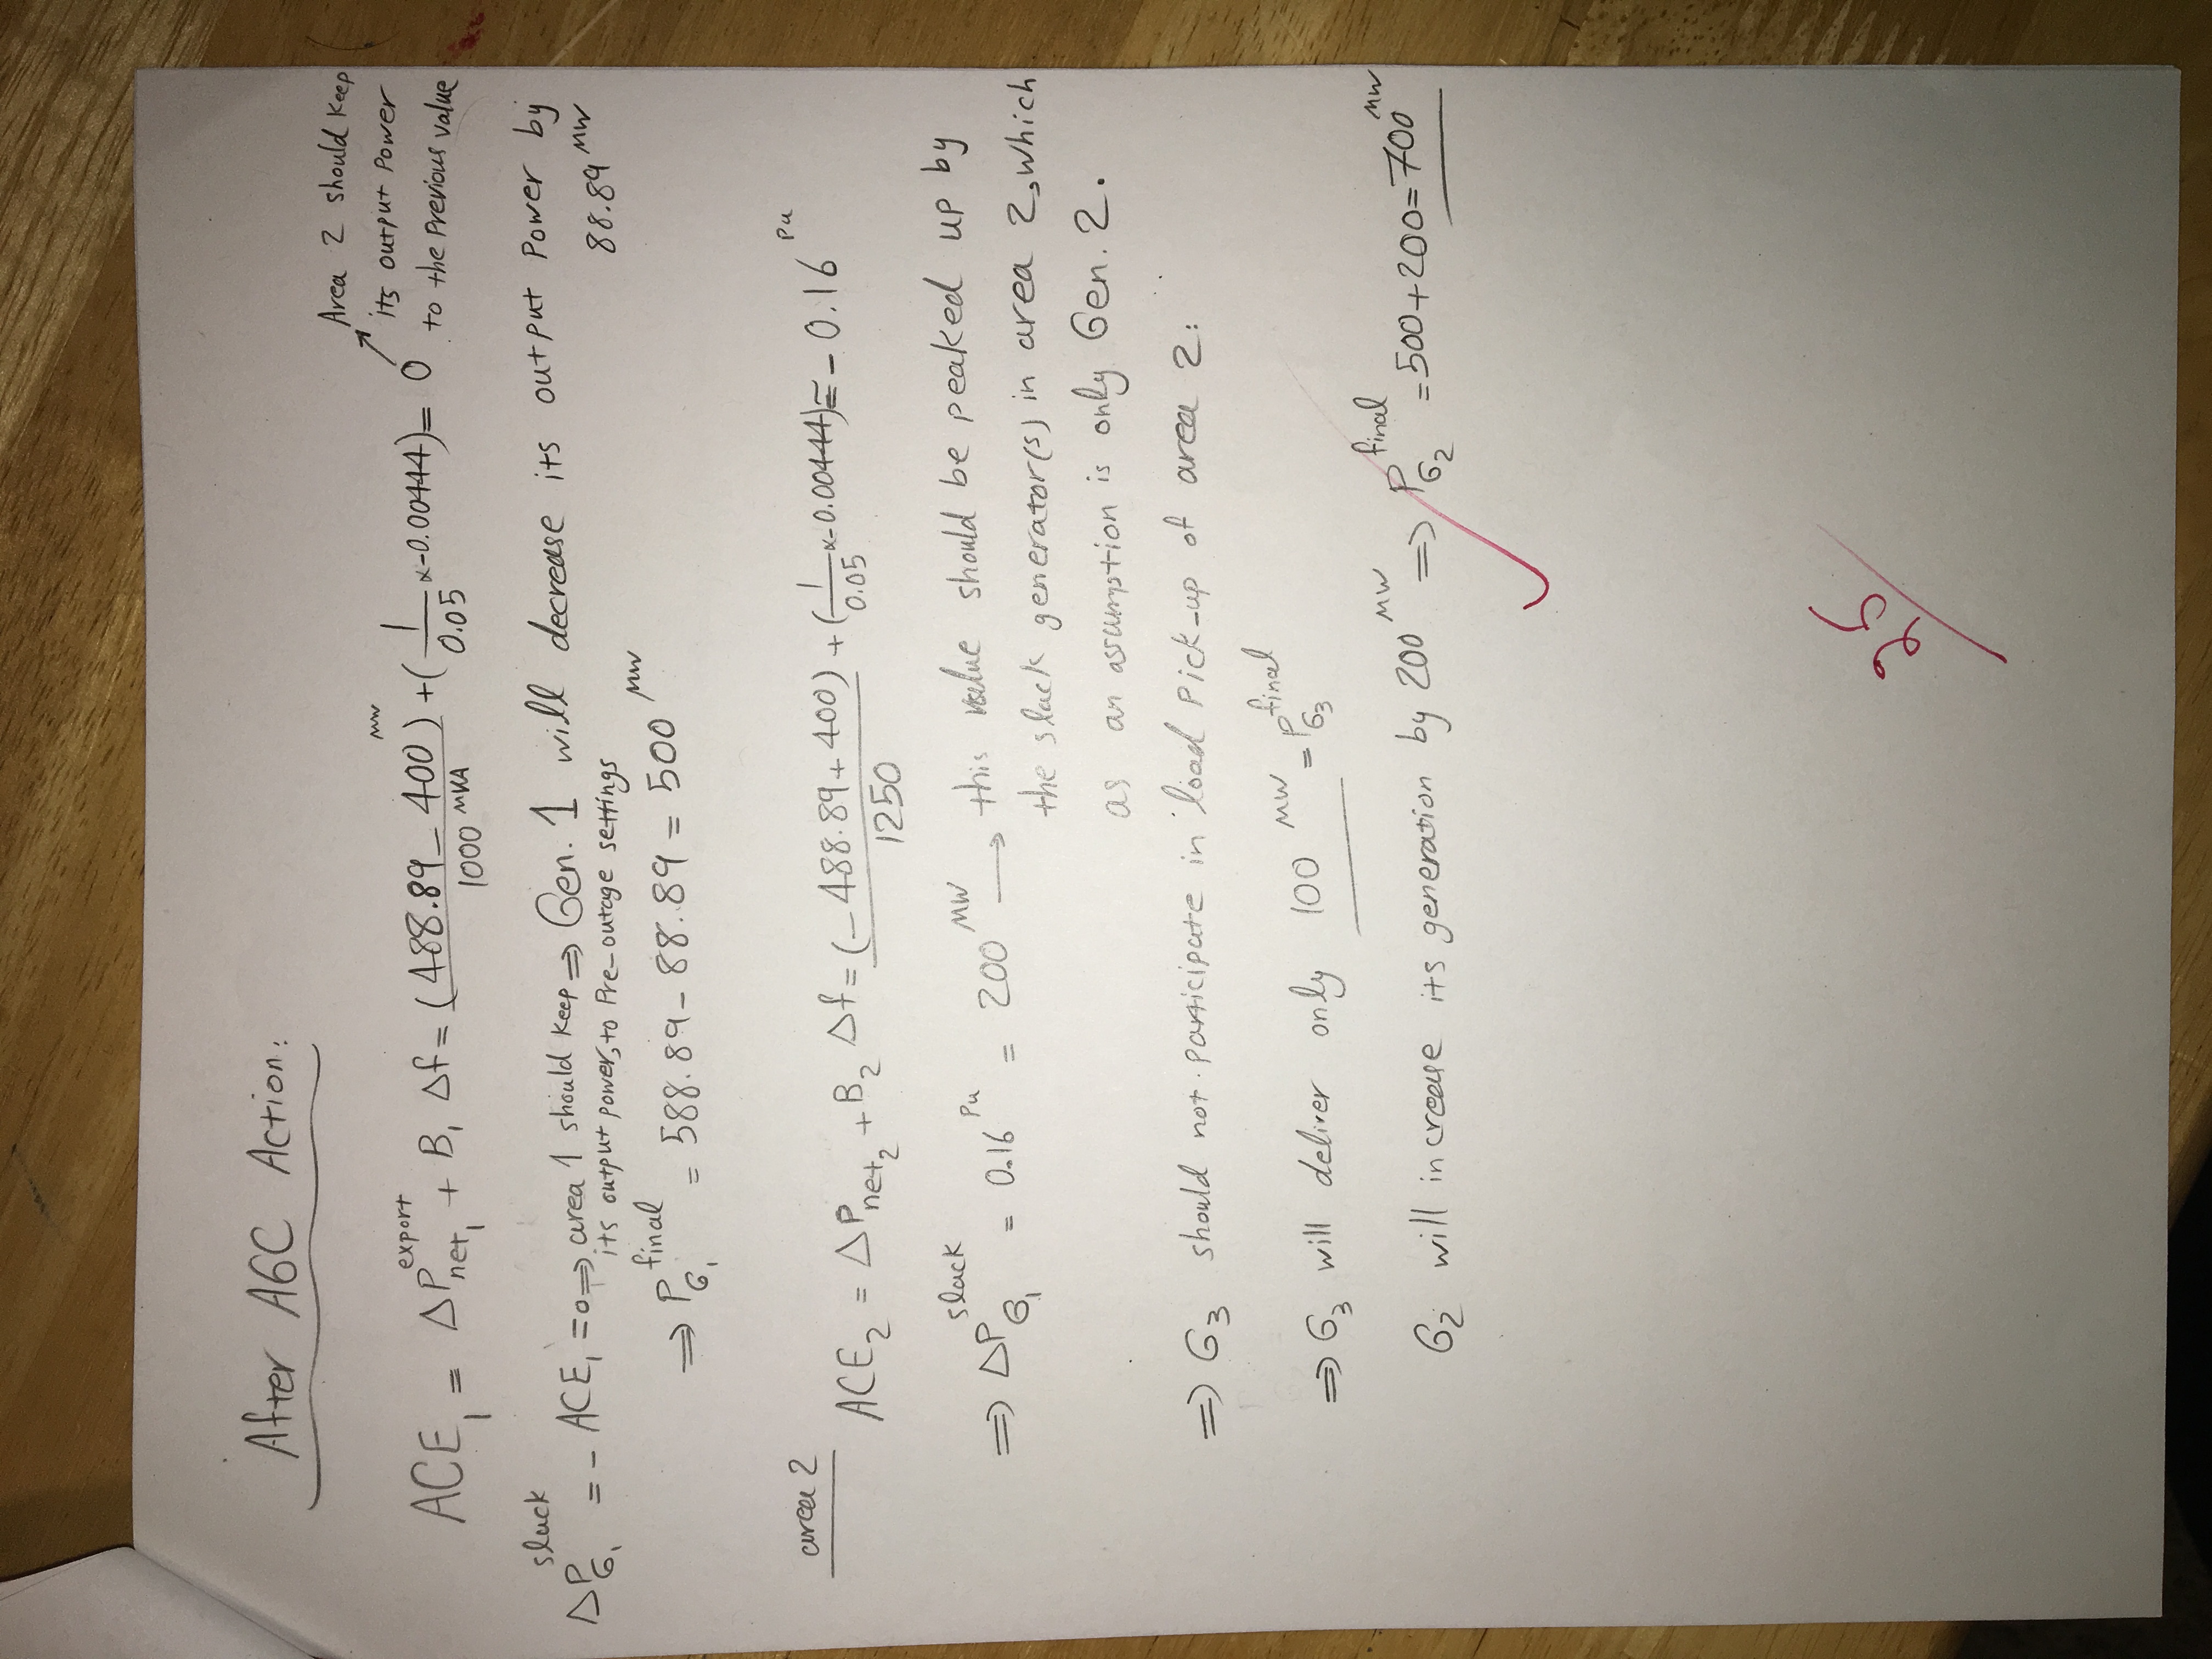 After AGC Action:
Area 2 should keep
its output power
to the Previous value
ACE₁ = ΔP_net₁^export + B₁ Δf = (488.89 - 400)^MW / 1000^MVA + (1/0.05 × -0.00444) = 0
ΔP_G₁^slack = - ACE₁ = 0 ⇒ area 1 should keep ⇒ Gen. 1 will decrease its output power by
its output power, to Pre-outage settings 88.89^MW
⇒ P_G₁^final = 588.89 - 88.89 = 500^MW
area 2
ACE₂ = ΔP_net₂ + B₂ Δf = (-488.89 + 400) / 1250 + (1/0.05 × -0.00444) = - 0.16^Pu
⇒ ΔP_G₁^slack = 0.16^Pu = 200^MW → this value should be peaked up by
the slack generator(s) in area 2, which
as an assumption is only Gen. 2.
⇒ G₃ should not participate in load pick-up of area 2:
⇒ G₃ will deliver only 100^MW = P_G₃^final
G₂ will increase its generation by 200^MW ⇒ P_G₂^final = 500+200 = 700^MW
25